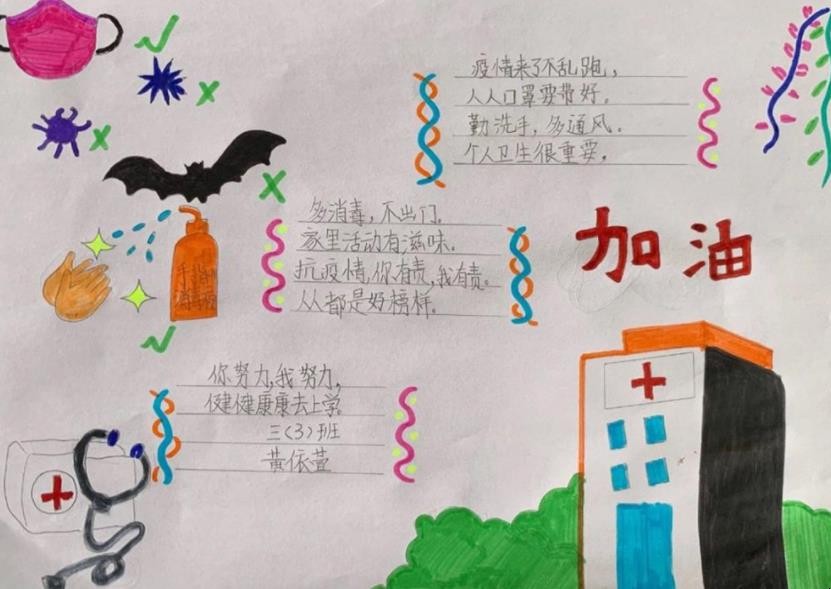 疫情来了不乱跑,
人人口罩要带好。
勤洗手,多通风。
个人卫生很重要,
多消毒,不出门。
家里活动有滋味。
抗疫情,你有责,我有责。
人人都是好榜样。
加油
你努力,我努力,
健健康康去上学。
三(3)班
黄依萱